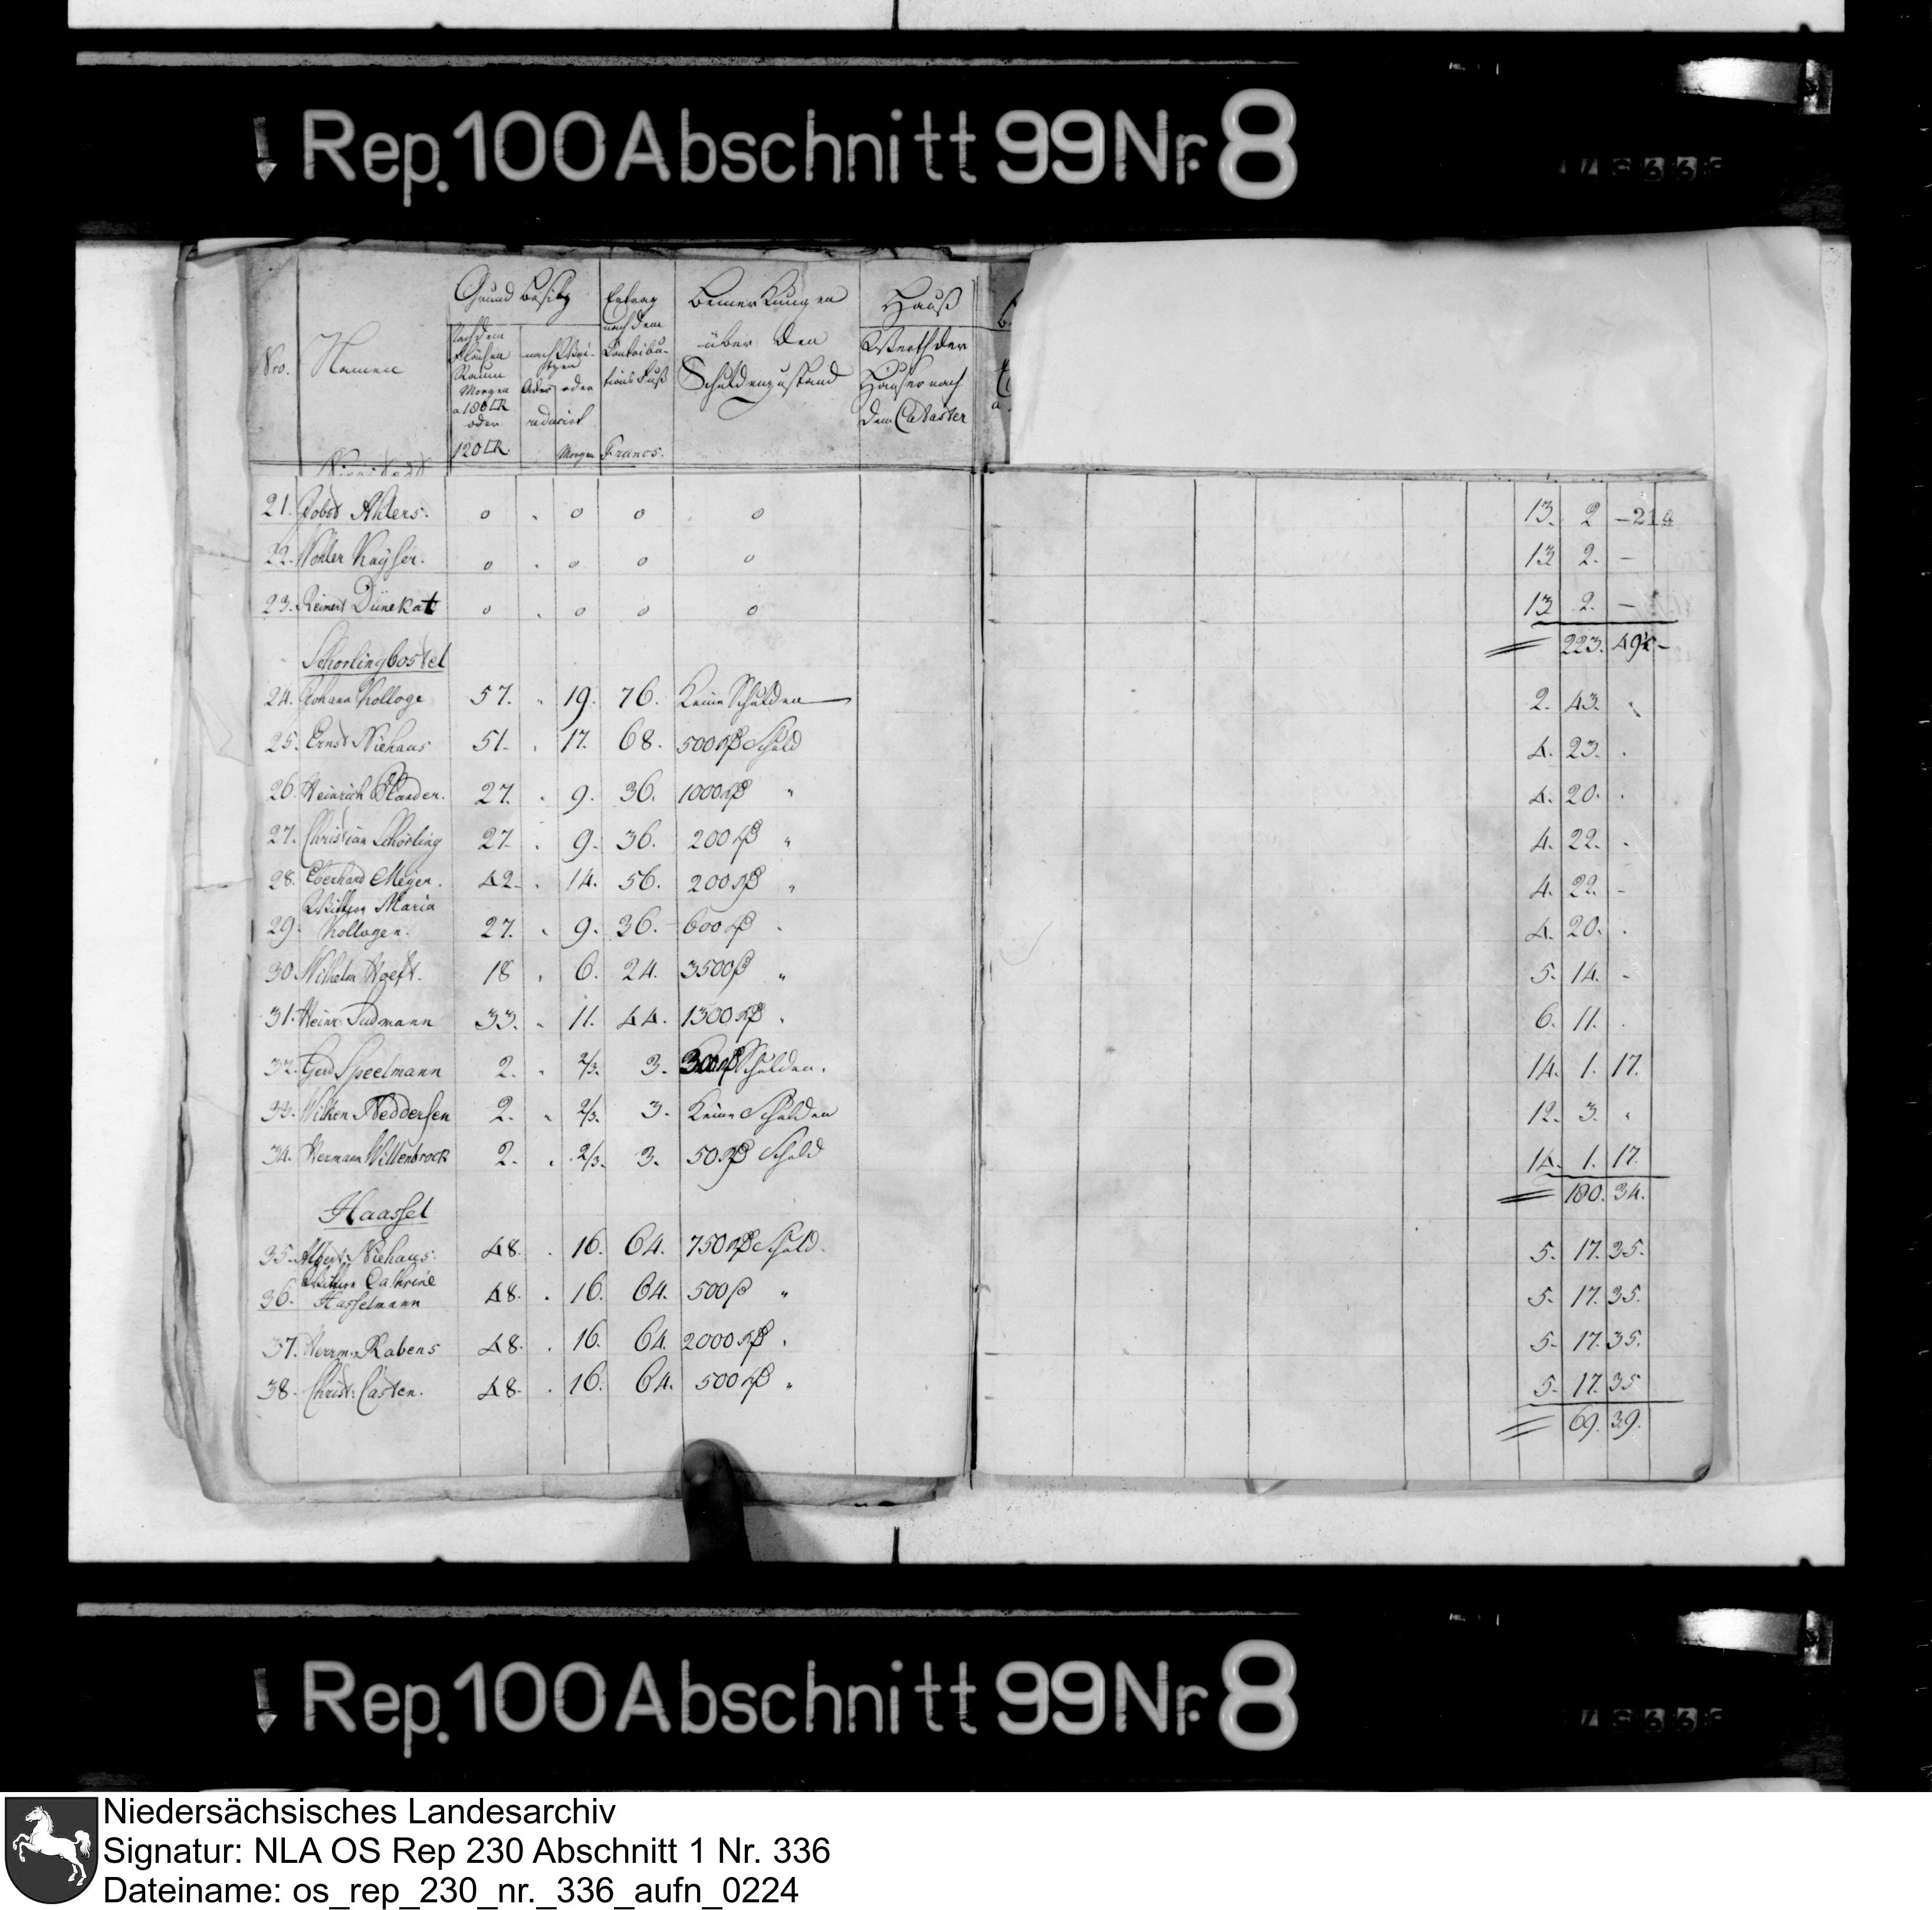 Rep. 100 Abschnitt 99 Nr. 8
Nro. Namen Grund Besitz Ertrag nach dem Contribu- tions Fuß Francs. Bemerkungen über den Schuldenzustand Hauß Werth der Häuser nach dem Cataster
Nach dem Flächen Raum Morgen a 180 □R oder 120 □R.
oder reducirt Morgen
21. Jobst Ahlers. 0 . 0 0 0 13. 2 – 214
22. Wohler Kayser. 0 . 0 0 0 13 2. –
23. Reinert Dünekat 0 . 0 0 0 13 2. –
223. 49
Schorlingbostel
24. Johann Kolloge 57. " 19. 76. Keine Schulden 2. 43. "
25. Ernst Niehaus 51. . 17. 68. 500 rß Schuld 4. 23. .
26. Heinrich Plander. 27. " 9. 36. 1000 rß " 4. 20. .
27. Christian Schorling 27. . 9. 36. 200 rß " 4. 22. .
28. Everhard Meyer. 42. . 14. 56. 200 rß " 4. 22. –
29. Wittwe Maria Kollogen. 27. " 9. 36. 600 rß . 4. 20. .
30. Wilhelm Hoeft. 18 . 6. 24. 3500 ß " 5. 14. –
31. Heinr. Sudmann 33. " 11. 44. 1300 rß . 6. 11. .
32. Gerd Speelmann 2. " 2/3. 3. 300 rß Schulden. 14. 1. 17.
33. Wilken Neddersen 2. " 2/3. 3. Keine Schulden 12. 3. "
34. Hermann Willenbrock 2. . 2/3. 3. 50 rß Schuld 14. 1. 17.
180. 34.
Haassel
35. Albert Niehaus. 48. . 16. 64. 750 rß Schuld. 5. 17. 35.
36. Wittwe Cathrine Hasselmann 48. . 16. 64. 500 ß " 5. 17. 35.
37. Herrm. Rabens 48. . 16. 64. 2000 rß . 5. 17. 35.
38. Christ. Casten. 48. . 16. 64. 500 rß " 5. 17. 35
69. 39.
Rep. 100 Abschnitt 99 Nr. 8
Niedersächsisches Landesarchiv
Signatur: NLA OS Rep 230 Abschnitt 1 Nr. 336
Dateiname: os_rep_230_nr._336_aufn_0224